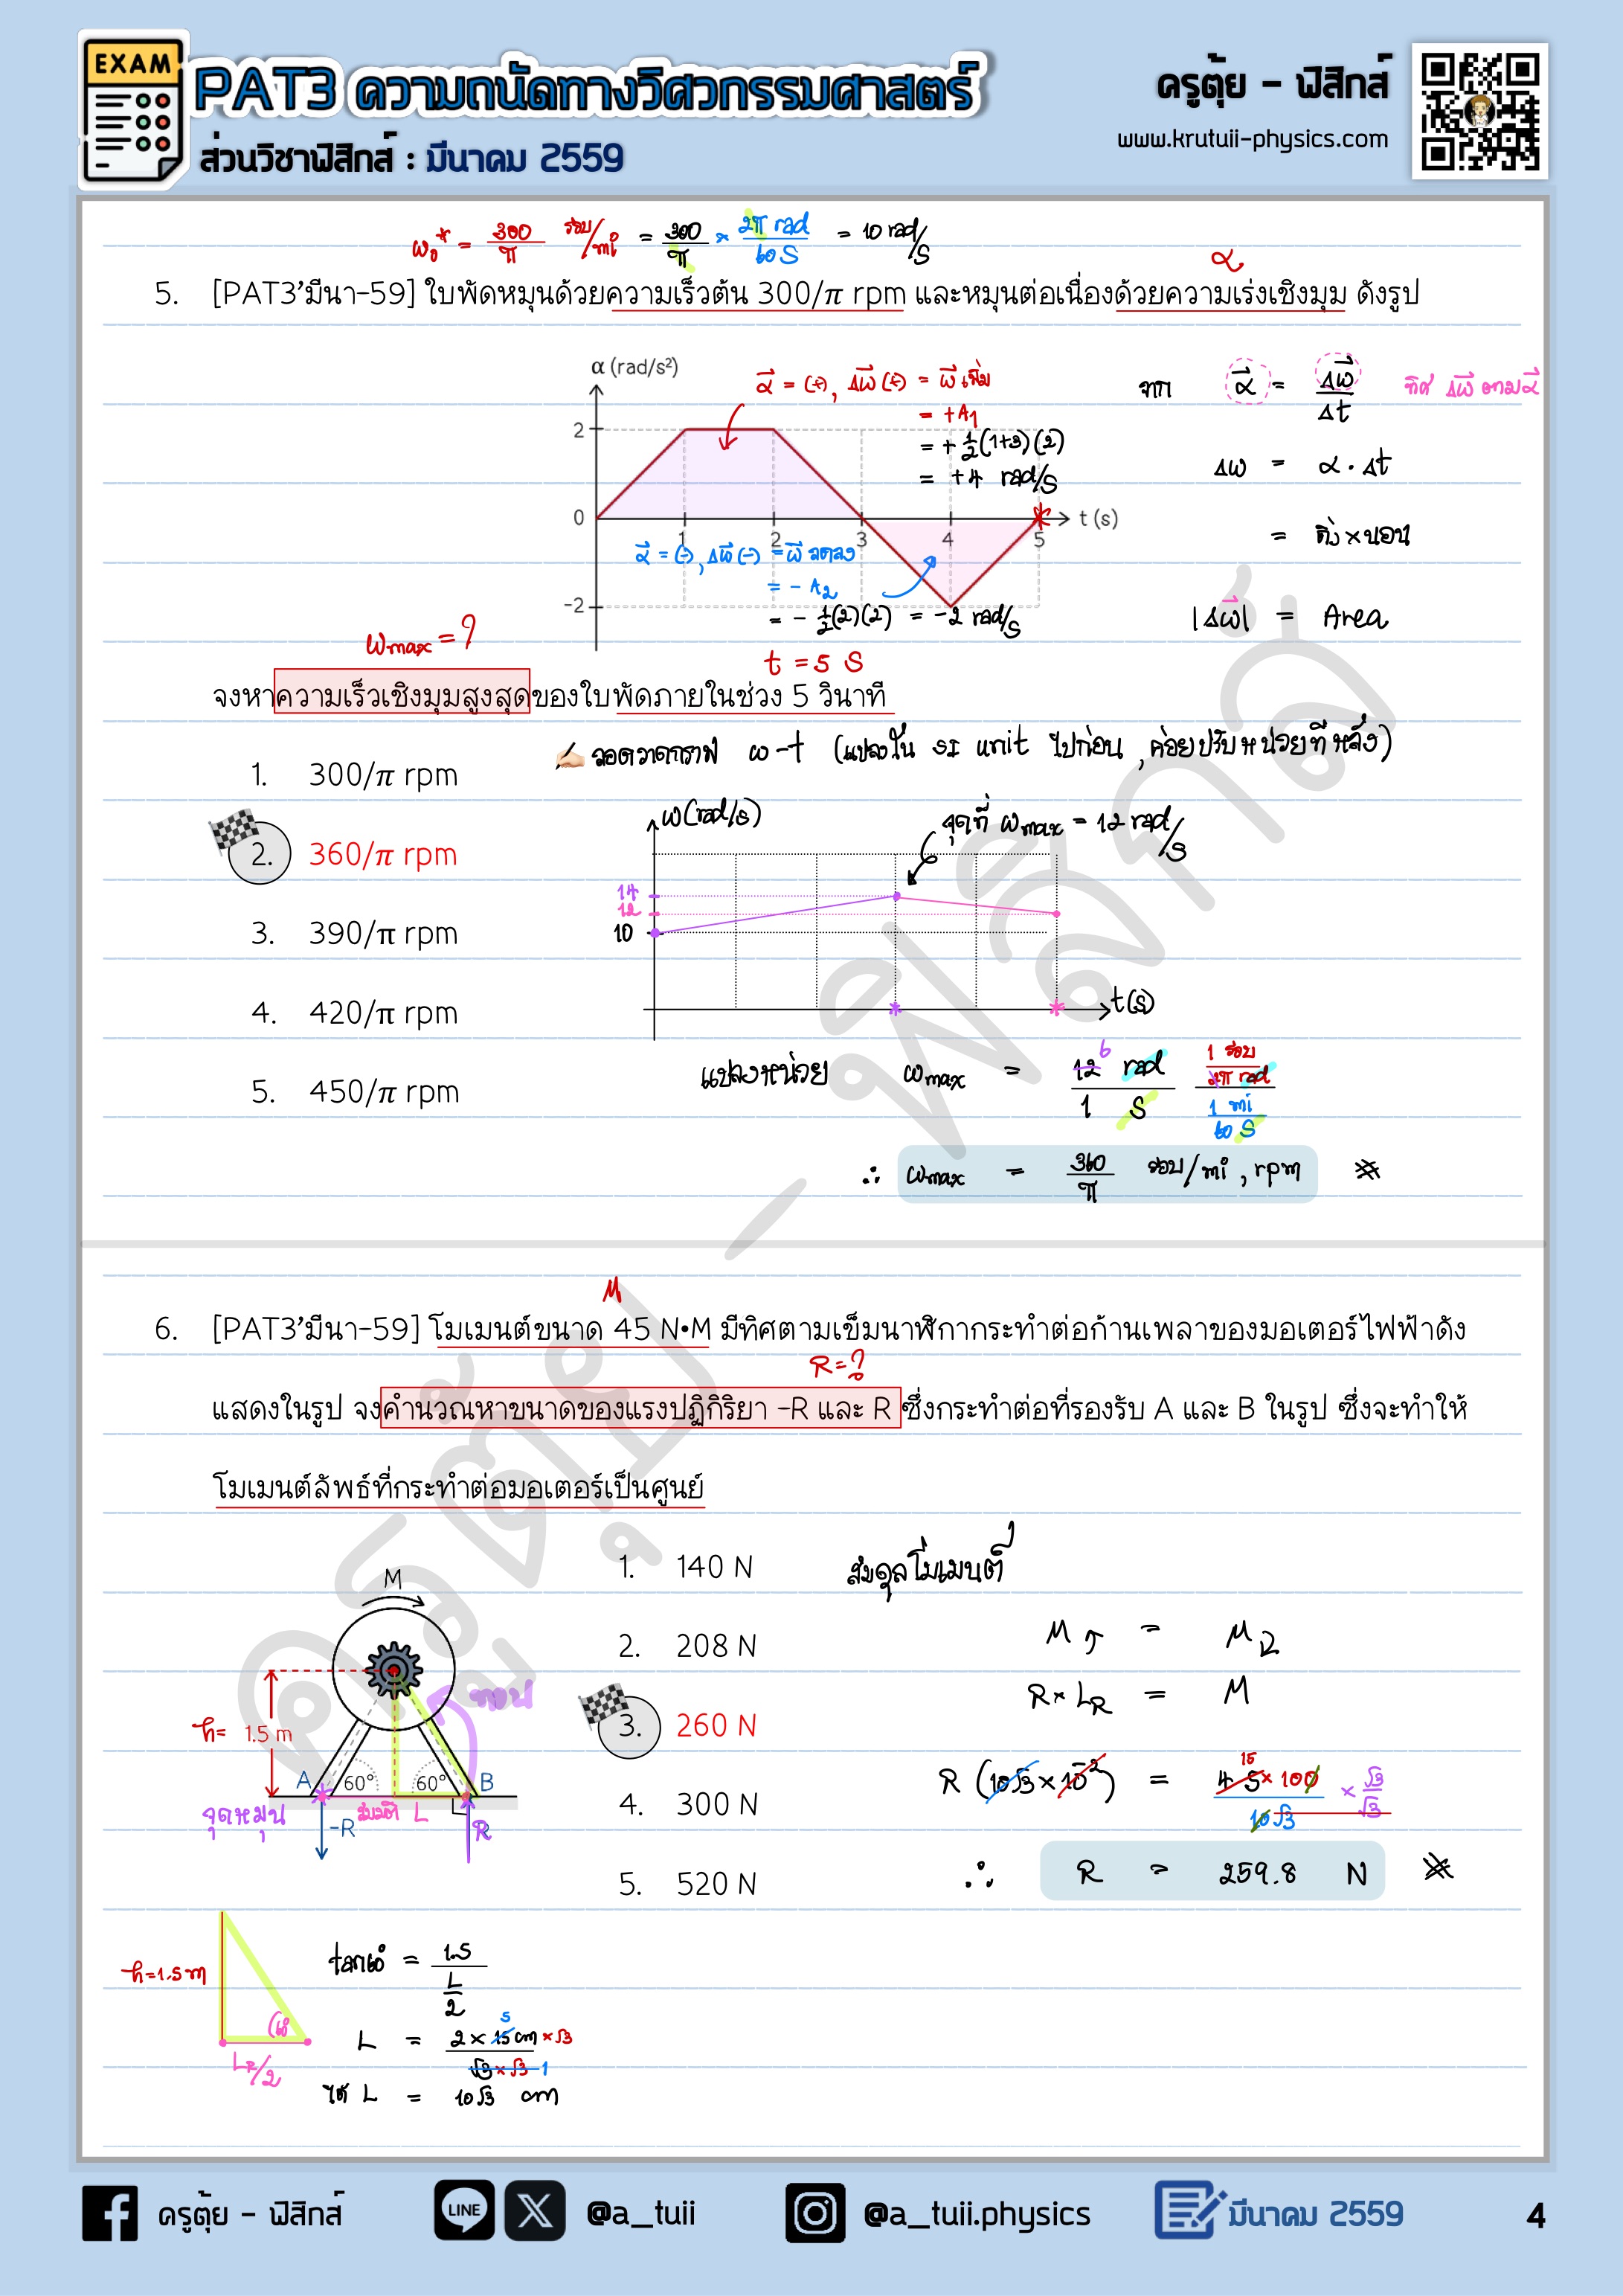 EXAM
PAT3 ความถนัดทางวิศวกรรมศาสตร์
ส่วนวิชาฟิสิกส์ : มีนาคม 2559
ครูตุ้ย - ฟิสิกส์
www.krutuii-physics.com
ω₀* = 300/π รอบ/mi = 300/π × 2π rad/60 S = 10 rad/s
α
5. [PAT3'มีนา-59] ใบพัดหมุนด้วยความเร็วต้น 300/π rpm และหมุนต่อเนื่องด้วยความเร่งเชิงมุม ดังรูป
α (rad/s²)
2
0
-2
1 2 3 4 5
t (s)
α = (+), Δω (+) = ω เพิ่ม
= +A₁
= + 1/2 (1+3)(2)
= +4 rad/s
α = (-), Δω (-) = ω ลดลง
= - A₂
= - 1/2 (2)(2) = -2 rad/s
จาก α = Δω/Δt ทิศ Δω ตาม α
Δω = α · Δt
= ตั้ง × นอน
|Δω| = Area
ωmax = ?
t = 5 S
จงหาความเร็วเชิงมุมสูงสุดของใบพัดภายในช่วง 5 วินาที
ลองวาดกราฟ ω-t (แปลงเป็น SI unit ไปก่อน, ค่อยปรับหน่วยทีหลัง)
1. 300/π rpm
2. 360/π rpm
3. 390/π rpm
4. 420/π rpm
5. 450/π rpm
ω(rad/s)
จุดที่ ωmax = 12 rad/s
14
12
10
t(s)
แปลงหน่วย ωmax = 12 6 rad/1 S 1 รอบ/2π rad 1 mi/60 S
∴ ωmax = 360/π รอบ/mi, rpm
M
6. [PAT3'มีนา-59] โมเมนต์ขนาด 45 N•M มีทิศตามเข็มนาฬิกากระทำต่อก้านเพลาของมอเตอร์ไฟฟ้าดัง
R = ?
แสดงในรูป จงคำนวณหาขนาดของแรงปฏิกิริยา -R และ R ซึ่งกระทำต่อที่รองรับ A และ B ในรูป ซึ่งจะทำให้
โมเมนต์ลัพธ์ที่กระทำต่อมอเตอร์เป็นศูนย์
M
h = 1.5 m
A 60° 60° B
จุดหมุน
สมมติ L
-R
R
1. 140 N
2. 208 N
3. 260 N
4. 300 N
5. 520 N
สมดุลโมเมนต์
M = M
R × L_R = M
R (10√3 × 10⁻²) = 45 15 × 100/10√3 × √3/√3
∴ R = 259.8 N
h=1.5 m
60
L/2
tan60° = 1.5/(L/2)
L = 2 × 15 5 cm × √3/√3 × √3 1
ได้ L = 10√3 cm
ครูตุ้ย - ฟิสิกส์
LINE
@a_tuii
@a_tuii.physics
มีนาคม 2559
4
ครูตุ้ย - ฟิสิกส์